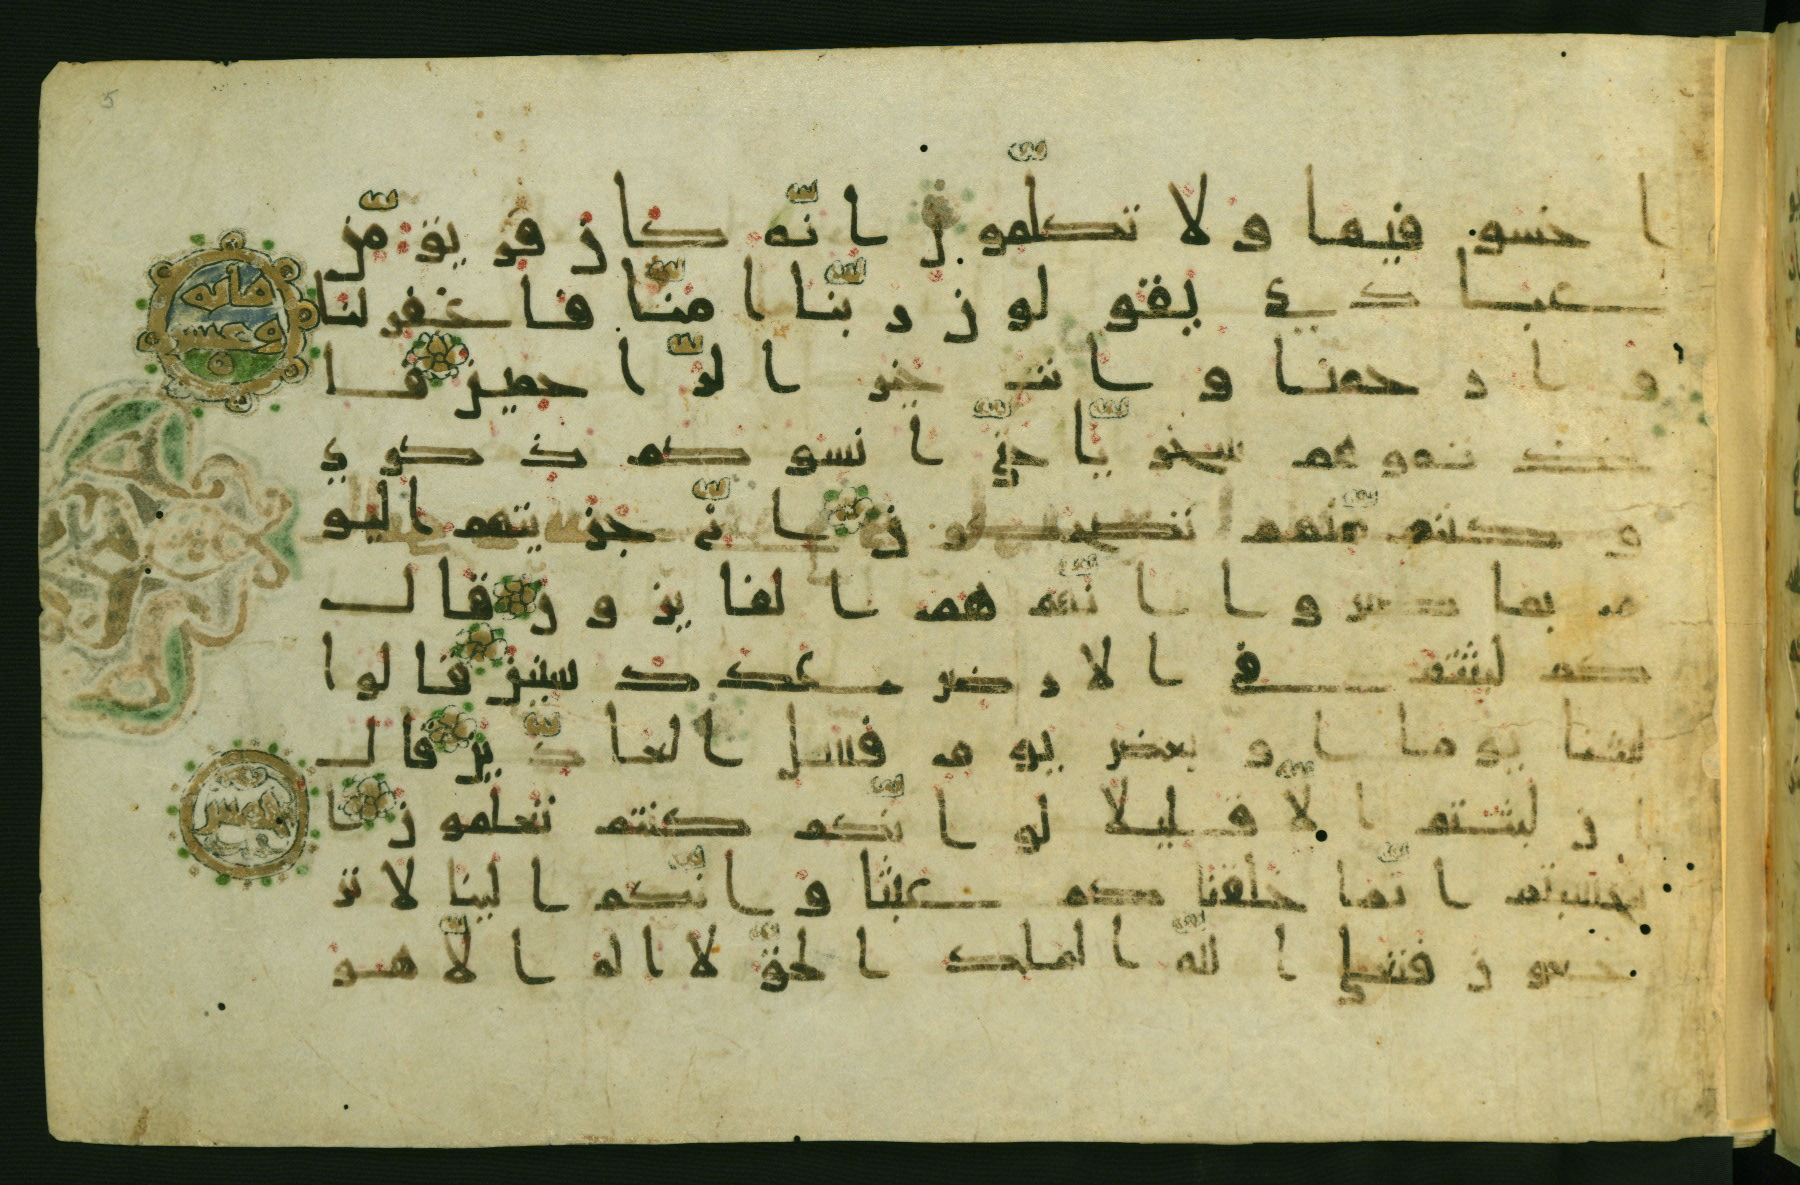 ا خسو فيها ولا تكلمون انه كان فريق من
عبادي يقولون ربنا امنا فاغفر لنا
وارحمنا وانت خير الراحمين فا
تخذتموهم سخريا حتى انسوكم ذكري
وكنتم منهم تضحكون اني جزيتهم اليو
م بما صبروا انهم هم الفايزون قال
كم لبثتم في الارض عدد سنين قالوا
لبثنا يوما او بعض يوم فسل العادين قال
ان لبثتم الا قليلا لو انكم كنتم تعلمون ا
فحسبتم انما خلقنكم عبثا وانكم الينا لا تر
جعون فتعلى الله الملك الحق لا اله الا هو
مائة
وعشر
5